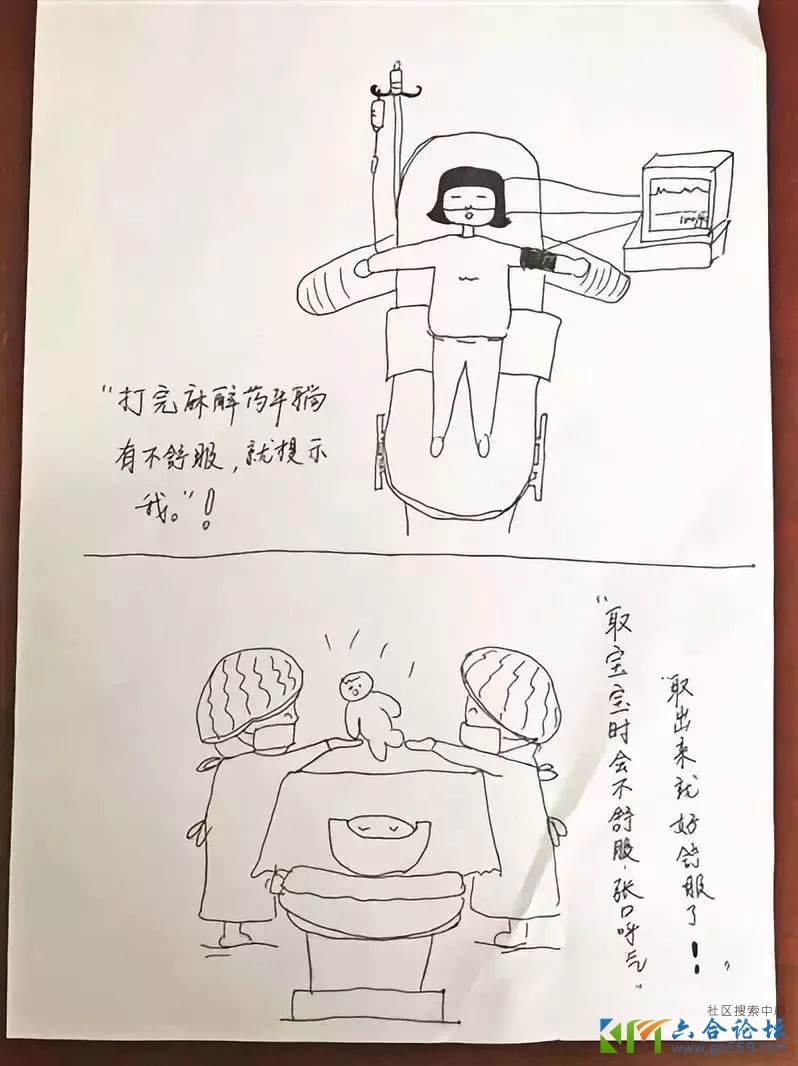 "打完麻醉药平躺
有不舒服，就提示
我。"！
"取宝宝时会不舒服，张口呼气"
"取出来就好舒服了！"
社区搜索中心
六合论坛
www.go569.com